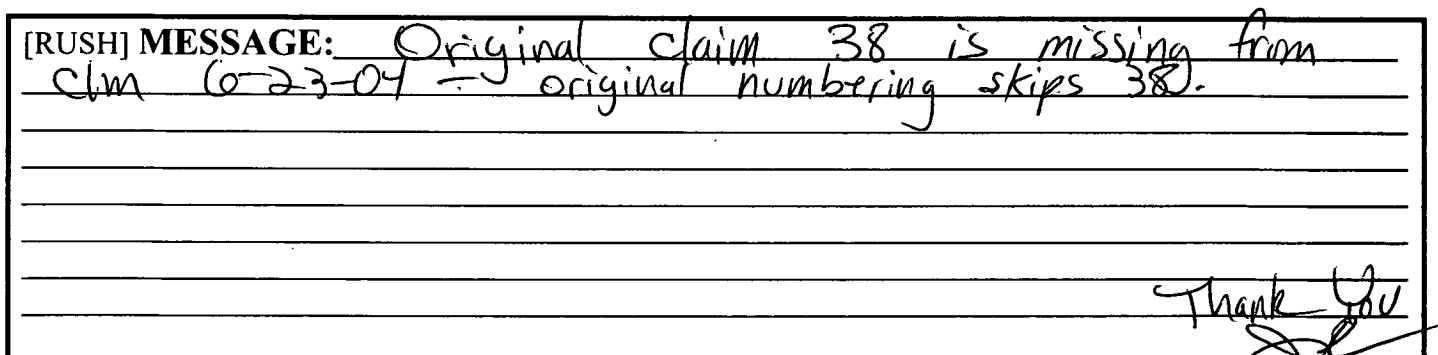 [RUSH] MESSAGE: Original claim 38 is missing from
clm 6-23-04 — original numbering skips 38.
Thank You